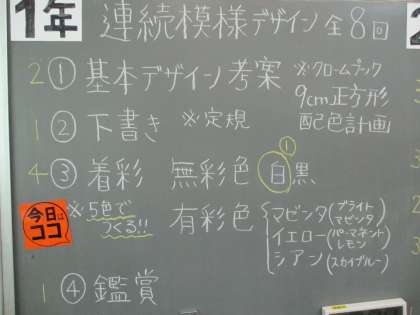 1年 連続模様デザイン 全8回
2 ① 基本デザイン考案 ※クロームブック
9cm正方形
1 ② 下書き ※定規 配色計画
4 ③ 着彩 無彩色 白黒 ①
※5色で つくる!! 有彩色 マゼンタ(ブライトマゼンタ)
イエロー(パーマネントレモン)
シアン(スカイブルー)
今日はココ
1 ④ 鑑賞